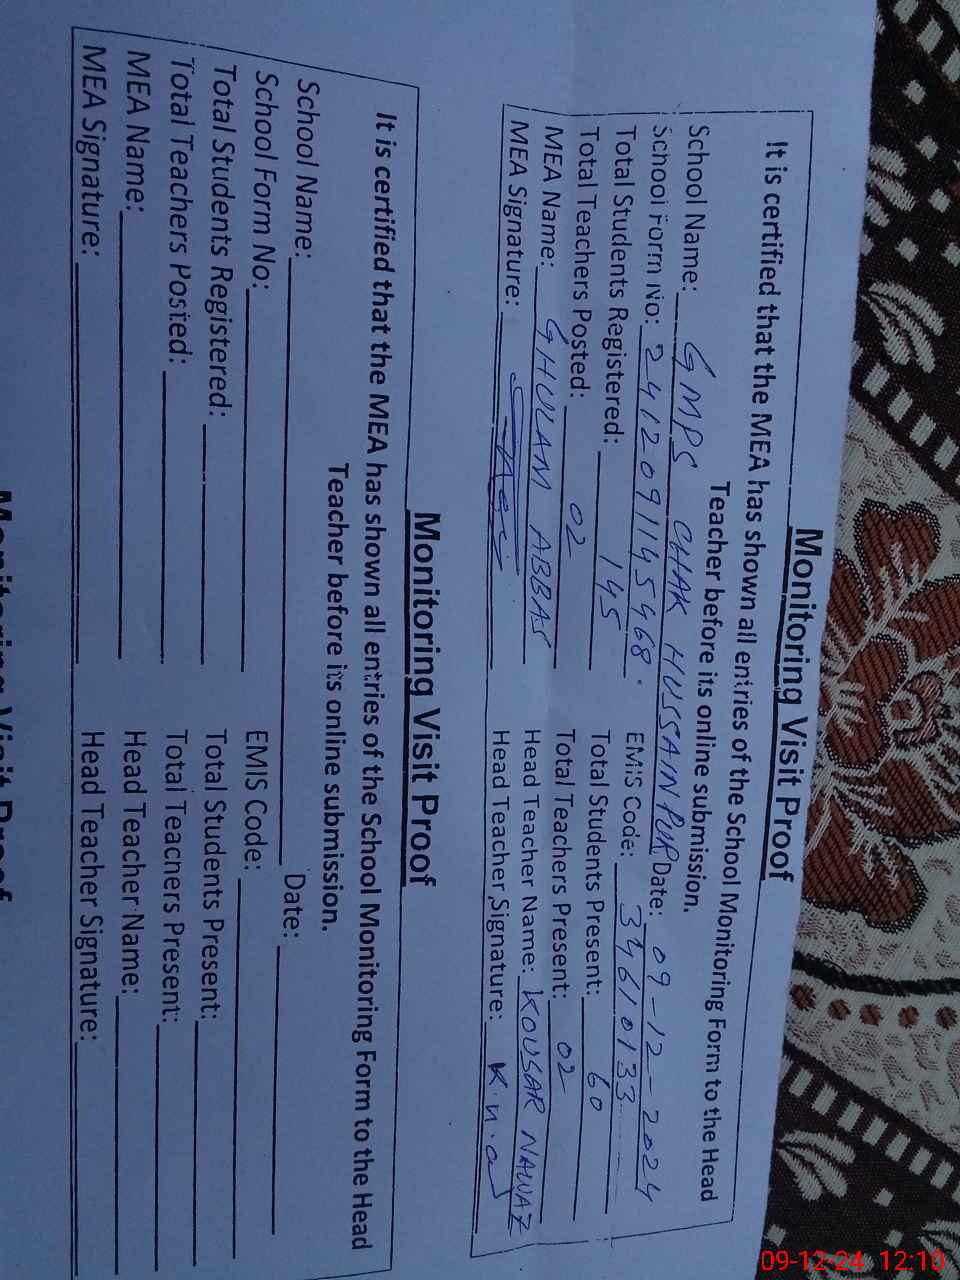 Monitoring Visit Proof
It is certified that the MEA has shown all entries of the School Monitoring Form to the Head
Teacher before its online submission.
School Name: GMPS CHAK HUSSAINPUR Date: 09-12-2024
School Form No: 2412091145468. EMIS Code: 34610133
Total Students Registered: 145 Total Students Present: 60
Total Teachers Posted: 02 Total Teachers Present: 02
MEA Name: GHULAM ABBAS Head Teacher Name: KOUSAR NAWAZ
MEA Signature: Head Teacher Signature: K.n.a
Monitoring Visit Proof
It is certified that the MEA has shown all entries of the School Monitoring Form to the Head
Teacher before its online submission.
School Name: Date:
School Form No: EMIS Code:
Total Students Registered: Total Students Present:
Total Teachers Posted: Total Teachers Present:
MEA Name: Head Teacher Name:
MEA Signature: Head Teacher Signature:
Monitoring Visit Proof
09-12-24 12:10